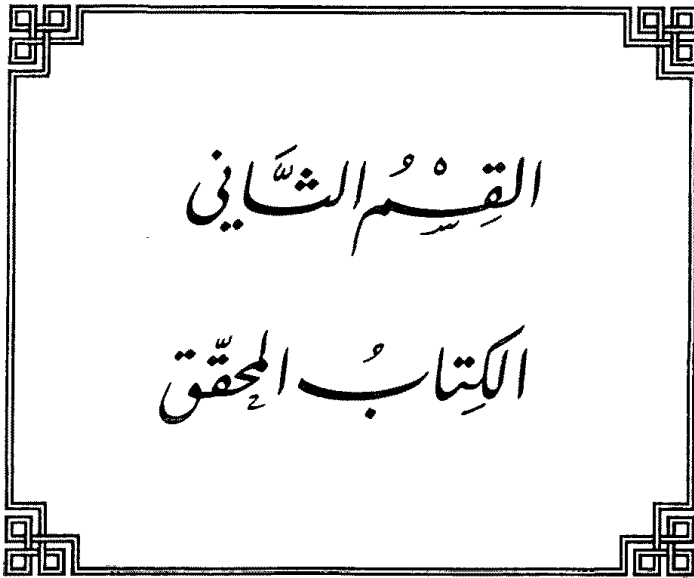 القِسْمُ الثَّاني
الكِتابُ المحقّق